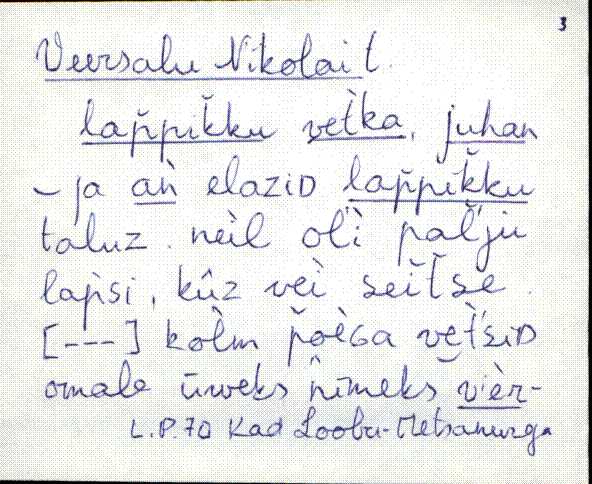 3
Veersalu Nikolai t.
lap̆pik̆ku vet̀ka, juhan
– ja aǹ elaziD lap̆pik̆ku
taluz. neìl ol̀'i pal̆'ju
lap̀si, kûz veì seit̆se.
[---] kol̀m p̆oèGa vet̀'siD
omale ūweks ǹimeks vièr-
L.P. 70 Kad Loobu-Metsanurga